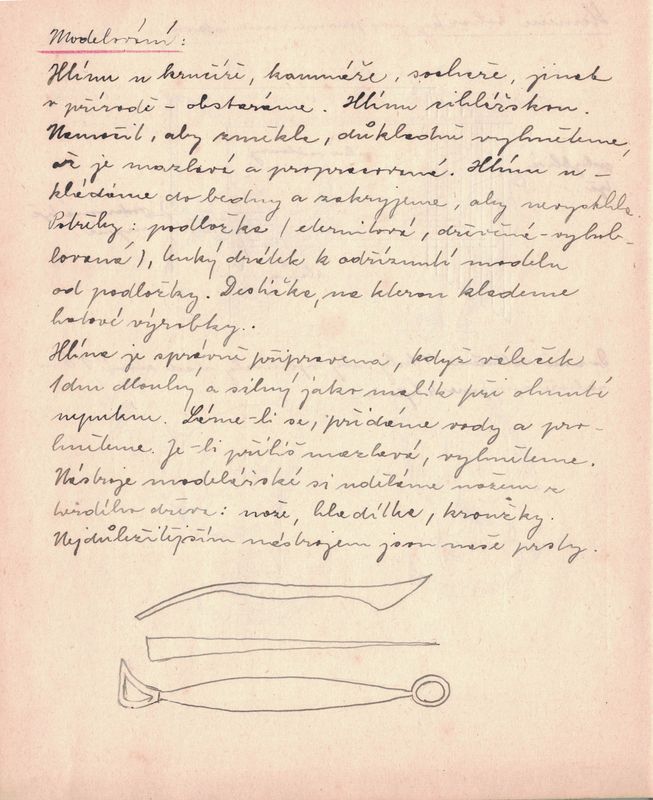 Modelování:
Hlínu u hrnčíře, kamnáře, sochaře, jinak
v přírodě – obstaráme. Hlínu cihlářskou.
Namočit, aby změkla, důkladně vyhněteme,
až je mazlavá a propracovaná. Hlínu u-
kládáme do bedny a zakryjeme, aby nevyschla.
Potřeby: podložka (eternitová, dřevěná – vyhob-
lovaná), tenký drátek k odříznutí modelu
od podložky. Destička, na kterou klademe
hotové výrobky..
Hlína je správně připravena, když váleček
1 dm dlouhý a silný jako malík při ohnutí
nepukne. Láme-li se, přidáme vody a pro-
hněteme. Je-li příliš mazlavá, vyhněteme.
Nástroje modelářské si uděláme nožem z
tvrdého dřeva: nože, hladítka, kroužky.
Nejdůležitějším nástrojem jsou naše prsty.